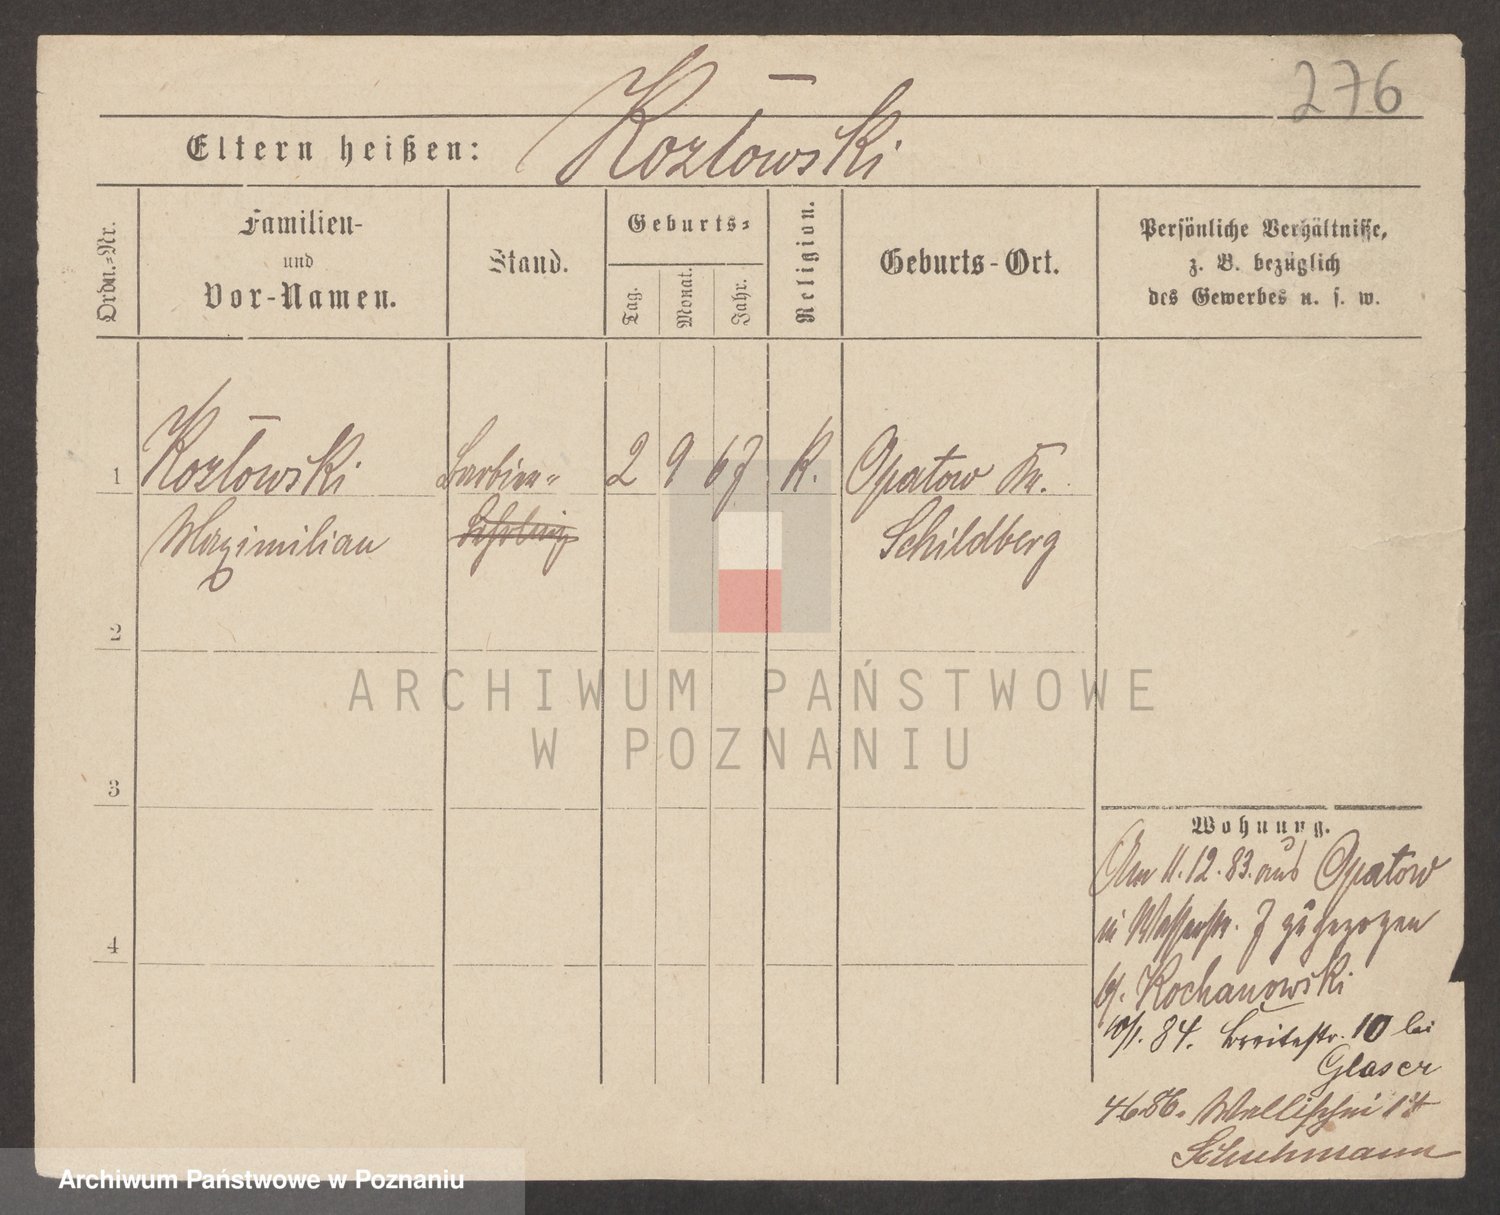 276
Eltern heißen: Kozłowski
Ordn.-Nr.
Familien-
und
Vor-Namen.
Stand.
Geburts-
Tag.
Monat.
Jahr.
Religion.
Geburts-Ort.
Persönliche Verhältnisse,
z. B. bezüglich
des Gewerbes u. s. w.
1 Kozłowski Barbier- 2 9 67 K. Opatow Kr.
Maximilian Lehrling Schildberg
2
ARCHIWUM PAŃSTWOWE
W POZNANIU
3
Wohnung.
Am 11.12.83. aus Opatow
in Wasserstr. 7 zugezogen
bj. Kochanowski
10/1. 84. Breitestr. 10 bei
Glaser
4/6.86. Wallischei
Schuhmann
4
Archiwum Państwowe w Poznaniu